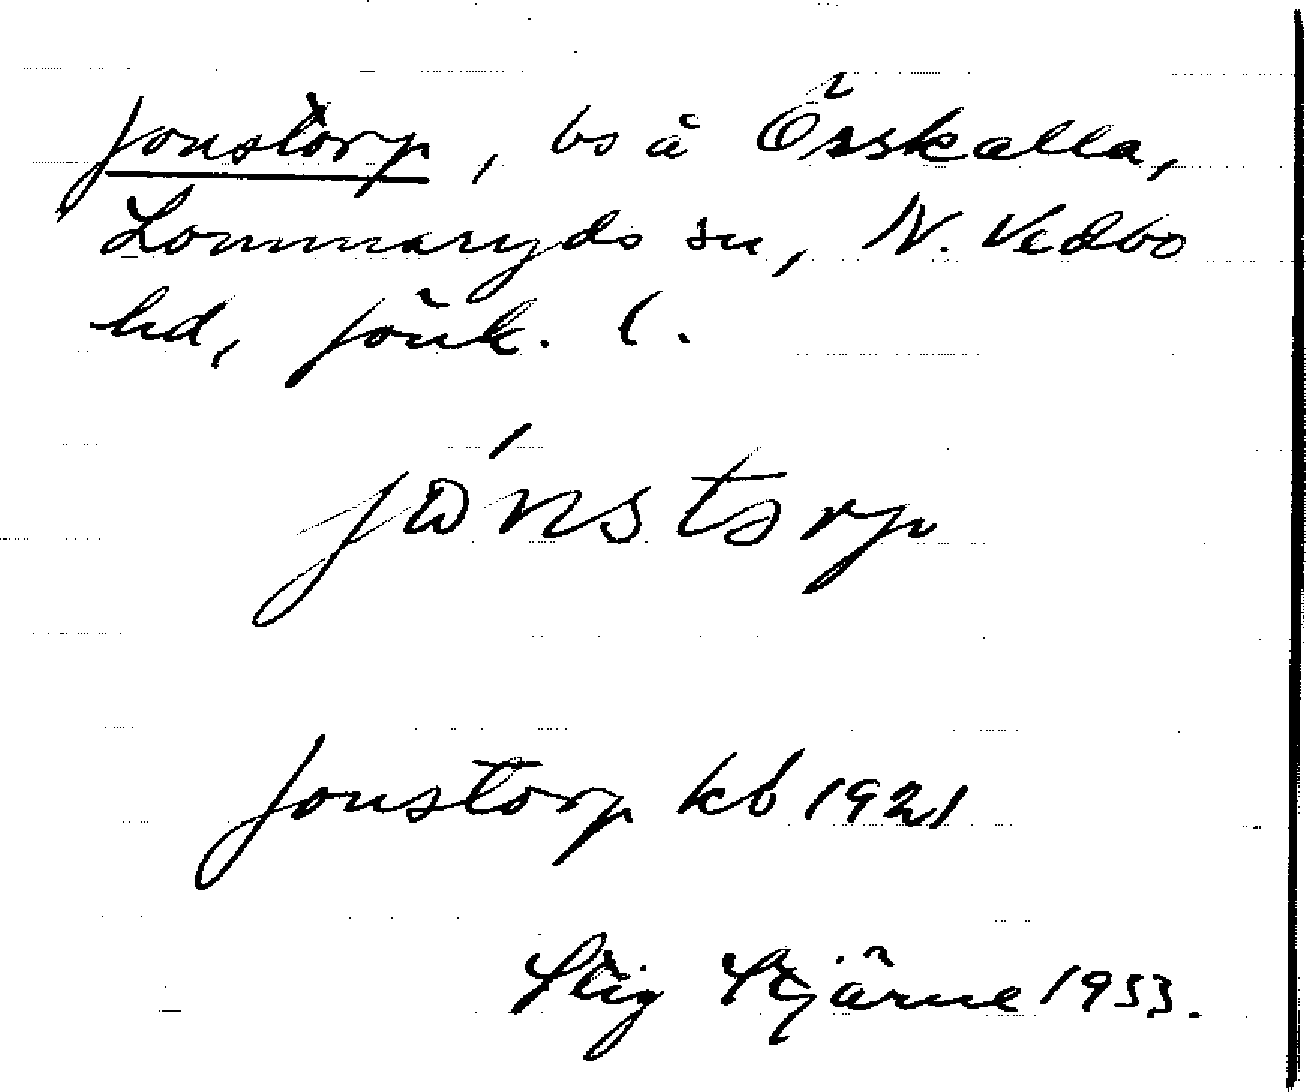 Jonstorp, bs å Össkalla,
Lommaryds sn, N. Vedbo
hd, Jönk. l.
jónstorp
Jonstorp kb 1921
Stig Stjärne 1953.